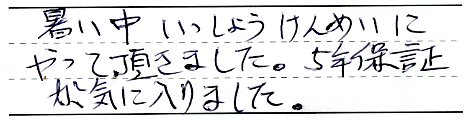 暑い中いっしょうけんめいに
やって頂きました。5年保証
が気に入りました。